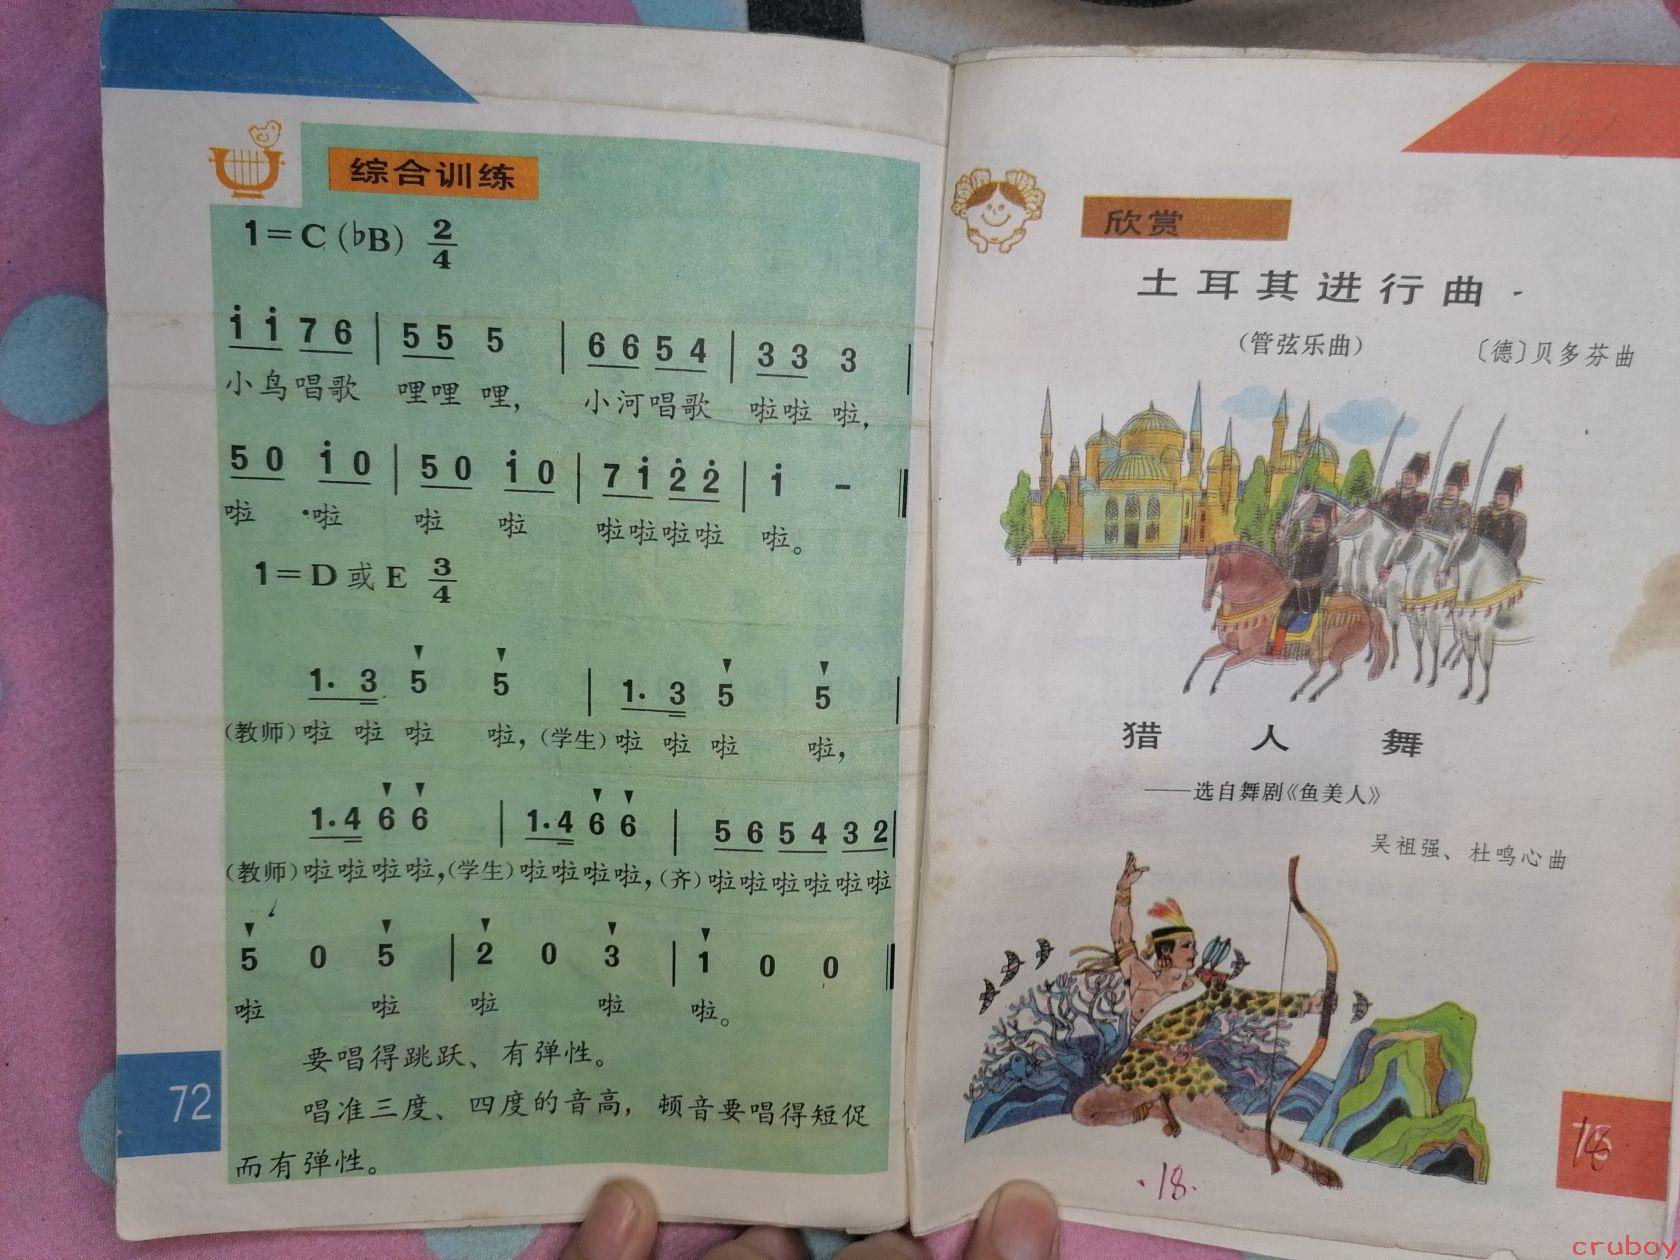 综合训练
1=C (♭B) 2/4
i i 7 6 | 5 5 5 | 6 6 5 4 | 3 3 3 |
小鸟唱歌 哩哩 哩, 小河唱歌 啦啦 啦,
5 0 i 0 | 5 0 i 0 | 7 i 2̇ 2̇ | i - ‖
啦 ·啦 啦 啦 啦啦啦啦 啦。
1=D或E 3/4
1. 3 5 5 | 1. 3 5 5 |
(教师)啦 啦 啦 啦,(学生)啦 啦 啦 啦,
1.4 6 6 | 1.4 6 6 | 5 6 5 4 3 2 |
(教师)啦啦啦啦,(学生)啦啦啦啦,(齐)啦啦啦啦啦啦
5 0 5 | 2 0 3 | 1 0 0 ‖
啦 啦 啦 啦 啦。
要唱得跳跃、有弹性。
唱准三度、四度的音高,顿音要唱得短促
而有弹性。
72
欣赏
土耳其进行曲
(管弦乐曲) 〔德〕贝多芬曲
猎人舞
——选自舞剧《鱼美人》
吴祖强、杜鸣心曲
·18·
18
cruboy